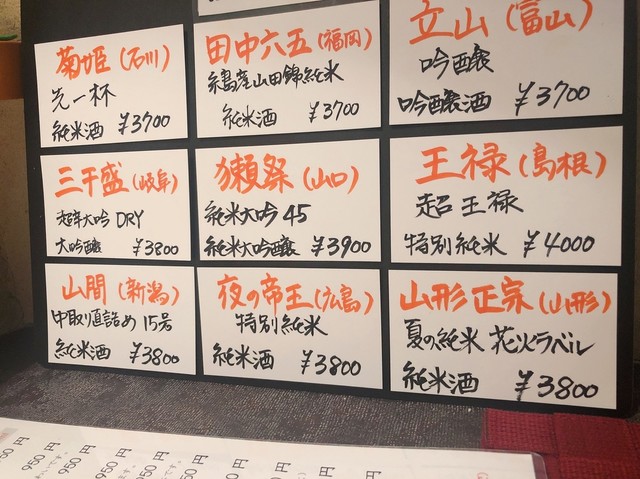 菊姫(石川)
先一杯
純米酒 ¥3700
田中六五(福岡)
糸島産山田錦純米
純米酒 ¥3700
立山(富山)
吟醸
吟醸酒 ¥3700
三千盛(岐阜)
超辛大吟 DRY
大吟醸 ¥3800
獺祭(山口)
純米大吟 45
純米大吟醸 ¥3900
王禄(島根)
超 王禄
特別純米 ¥4000
山間(新潟)
中取り直詰め 15号
純米酒 ¥3800
夜の帝王(広島)
特別純米
純米酒 ¥3800
山形正宗(山形)
夏の純米 花火ラベル
純米酒 ¥3800
950円
950円
950円
950円
円
円
円
円